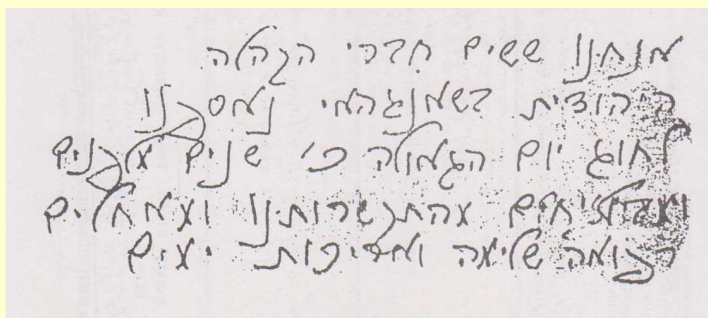 אנחנו ששים חברי הקהלה
היהודית בשאנגהאי נאספנו
לחוג יום הגאולה פ׳ שנים מלפנים
מהתקשרותנו ומאחלים
רפואה שלימה ואריכות ימים